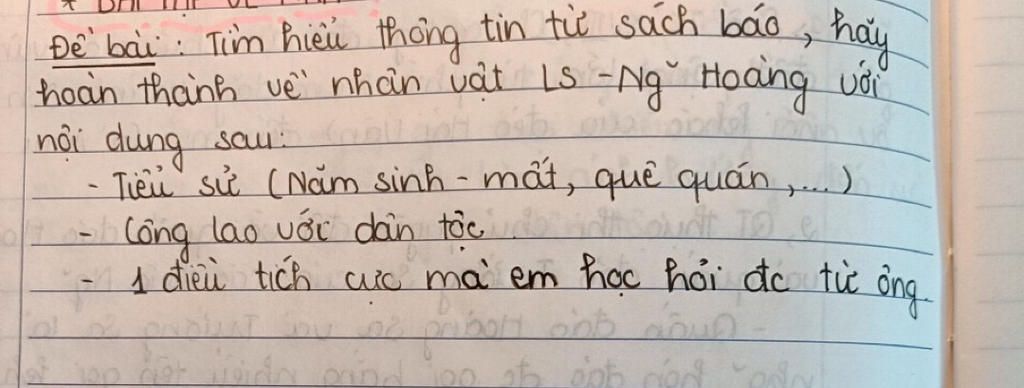 Đề bài: Tìm hiểu thông tin từ sách báo, hãy
hoàn thành về nhân vật LS - Ng~ Hoàng với
nội dung sau:
- Tiểu sử (Năm sinh - mất, quê quán,...)
- Công lao với dân tộc
- 1 điều tích cực mà em học hỏi đc từ ông.